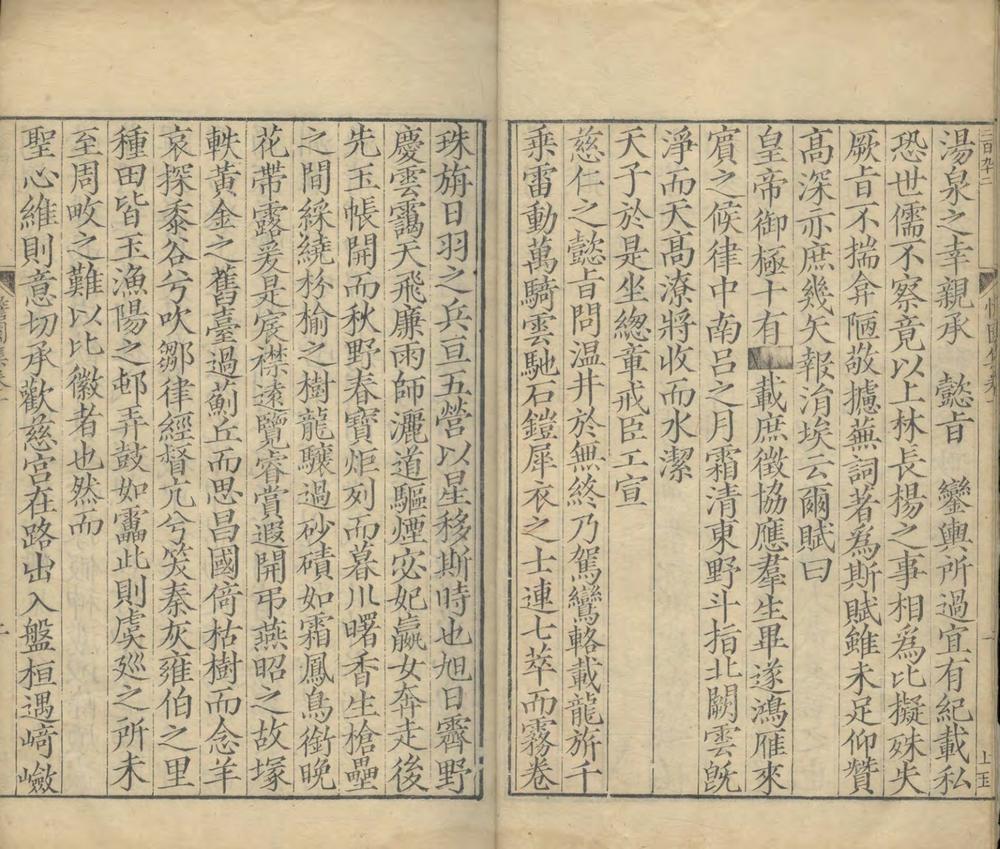 湯泉之幸親承　懿旨　鑾輿所過宜有紀載私
恐世儒不察竟以上林長揚之事相為比擬殊失
厥旨不揣弇陋敬攄蕪詞著為斯賦雖未足仰贊
高深亦庶幾矢報涓埃云爾賦曰
皇帝御極十有　載庶徵協應羣生畢遂鴻雁來
賔之候律中南呂之月霜清東野斗指北闕雲旣
淨而天高潦將收而水潔
天子於是坐總章戒臣工宣
慈仁之懿旨問温井於無終乃駕鸞輅載龍旂千
乘雷動萬騎雲馳石鎧犀衣之士連七萃而霧卷
珠旃日羽之兵亘五營以星移斯時也旭日霽野
慶雲靄天飛廉雨師灑道驅煙宓妃嬴女奔走後
先玉帳開而秋野春寶炬列而暮川曙香生槍壘
之間綵繞枌榆之樹龍驤過砂磧如霜鳳鳥銜晚
花帶露爰是宸襟遠覽睿賞遐開弔燕昭之故塚
軼黃金之舊臺過薊丘而思昌國倚枯樹而念羊
哀探黍谷兮吹鄒律經督亢兮笑秦灰雍伯之里
種田皆玉漁陽之邨弄鼓如靁此則虞廵之所未
至周畋之難以比徽者也然而
聖心維則意切承歡慈宮在路出入盤桓遇﨑嶮